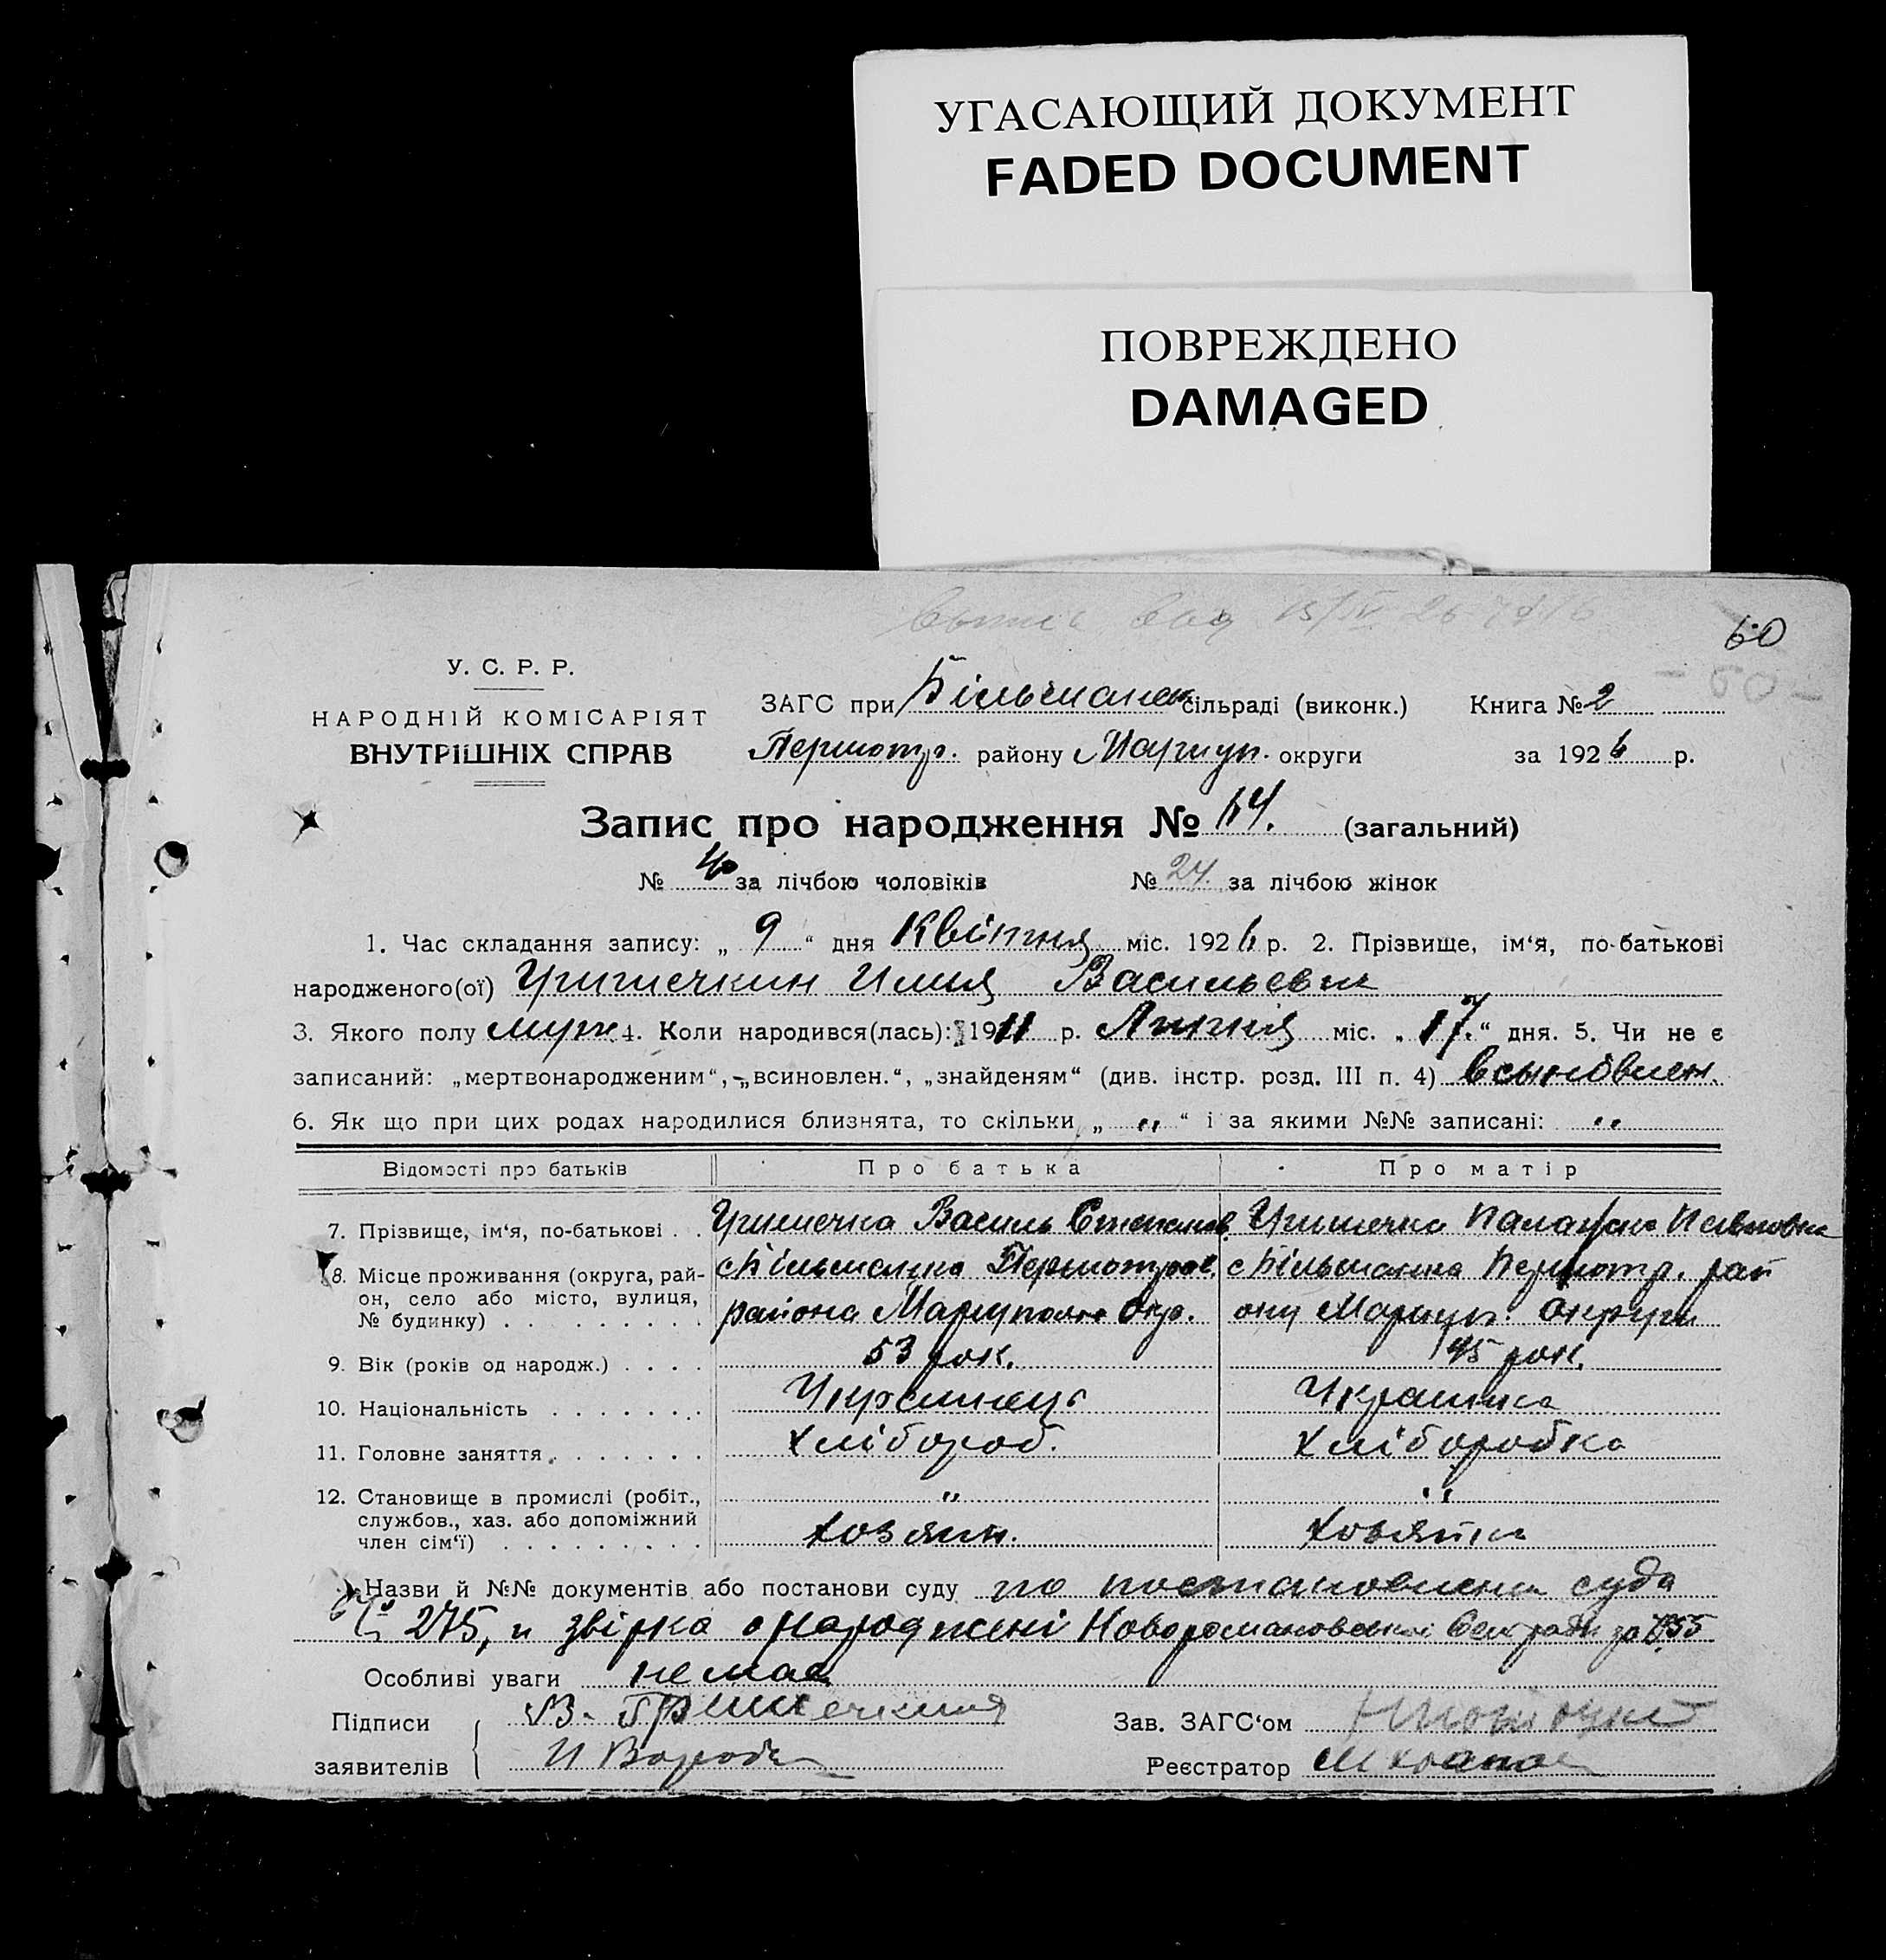 УГАСАЮЩИЙ ДОКУМЕНТ
FADED DOCUMENT
ПОВРЕЖДЕНО
DAMAGED
60
- 60 -
У. С. Р. Р.
НАРОДНІЙ КОМІСАРІЯТ
ВНУТРІШНІХ СПРАВ
ЗАГС при Більманск сільраді (виконк.) Книга № 2
Першотр. району Мариуп. округи за 1926 р.
Запис про народження № 64. (загальний)
№ 40 за лічбою чоловіків № 24. за лічбою жінок
1. Час складання запису: „ 9 “ дня Квітня міс. 1926 р. 2. Прізвище, ім‘я, по-батькові
народженого(ої) Илия Васильевич
3. Якого полу муж. 4. Коли народився(лась): 1911 р. Липня міс. „ 17. “ дня. 5. Чи не є
записаний: „мертвонародженим“, „всиновлен.“, „знайденям“ (див. інстр. розд. III п. 4) всыновлен.
6. Як що при цих родах народилися близнята, то скільки „ „ “ і за якими №№ записані: „
Відомості про батьків Про батька Про матір
7. Прізвище, ім‘я, по-батькові . . Василь Степанов Павловна
8. Місце проживання (округа, рай- с Більманка Першотров. с Більманка Першотр. рай
он, село або місто, вулиця,
№ будинку) . . . . . . . . . района Мариуполь Окр. ону Мариуп. Округи
9. Вік (років од народж.) . . . . 53 рок. 45 рок.
10. Національність . . . . . . . Украинець Украинка
11. Головне заняття . . . . . . . Хлібороб. Хліборобка
12. Становище в промислі (робіт., „ „
службов., хаз. або допоміжний
член сім‘ї) . . . . . . . . . Хозяин. Хозяйка
Назви й №№ документів або постанови суду по постановлени суда
275, и звірка о народжені Новоромановской за 55
Особливі уваги немає
Підписи В. Зав. ЗАГС‘ом
заявителів И Реєстратор